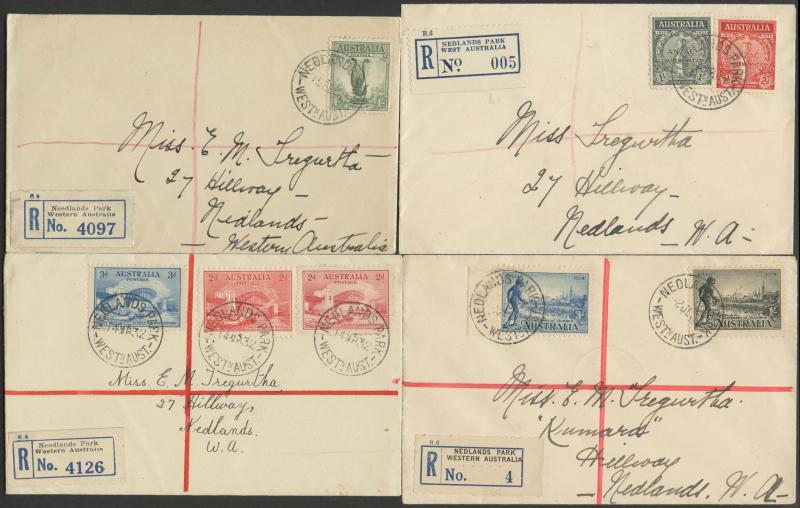 AUSTRALIA
POSTAGE
1/-
NEDLANDS
WEST'N AUST.
Miss. E. M. Tregurtha
27 Hillway-
Nedlands-
- Western Australia
R 6
Needlands Park
Western Australia
R No. 4097
R.6
NEDLANDS PARK
WEST AUSTRALIA
R No 005
AUSTRALIA AUSTRALIA
ANZAC
1/- 2d
WEST'N AUST.
Miss Tregurtha
27 Hillway-
Nedlands - W. A -
3d AUSTRALIA 3d 2d AUSTRALIA 2d 2d AUSTRALIA 2d
POSTAGE POSTAGE POSTAGE
NEDLANDS PARK NEDLANDS PARK NEDLANDS PARK
14MR32 14MR32 14MR32
WEST'N AUST. WEST'N AUST. WEST'N AUST.
Miss. E. M. Tregurtha
27 Hillway,
Nedlands.
W. A.
R 6
Needlands Park
Western Australia
R No. 4126
1834 1934
AUSTRALIA 3d AUSTRALIA 1/-
NEDLANDS PARK NEDLANDS
WEST'N AUST. WEST'N AUST.
Miss. E. M. Tregurtha.
"Kumara"
Hillway
- Nedlands. W. A -
R.6
NEDLANDS PARK
WESTERN AUSTRALIA
R No. 4